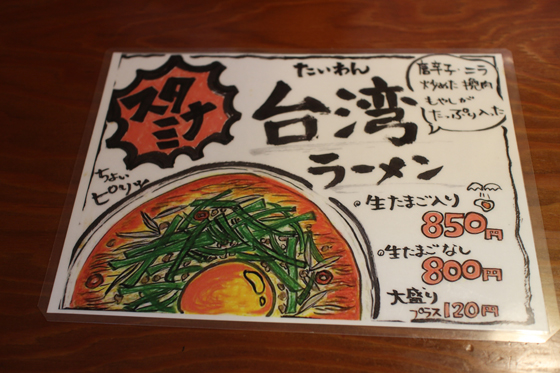 スタミナ
たいわん
台湾
ラーメン
唐辛子・ニラ
炒めた挽肉
もやしが
たっぷり入った
ちょい
ピリッ
生たまご入り
850円
生たまごなし
800円
大盛り
プラス120円